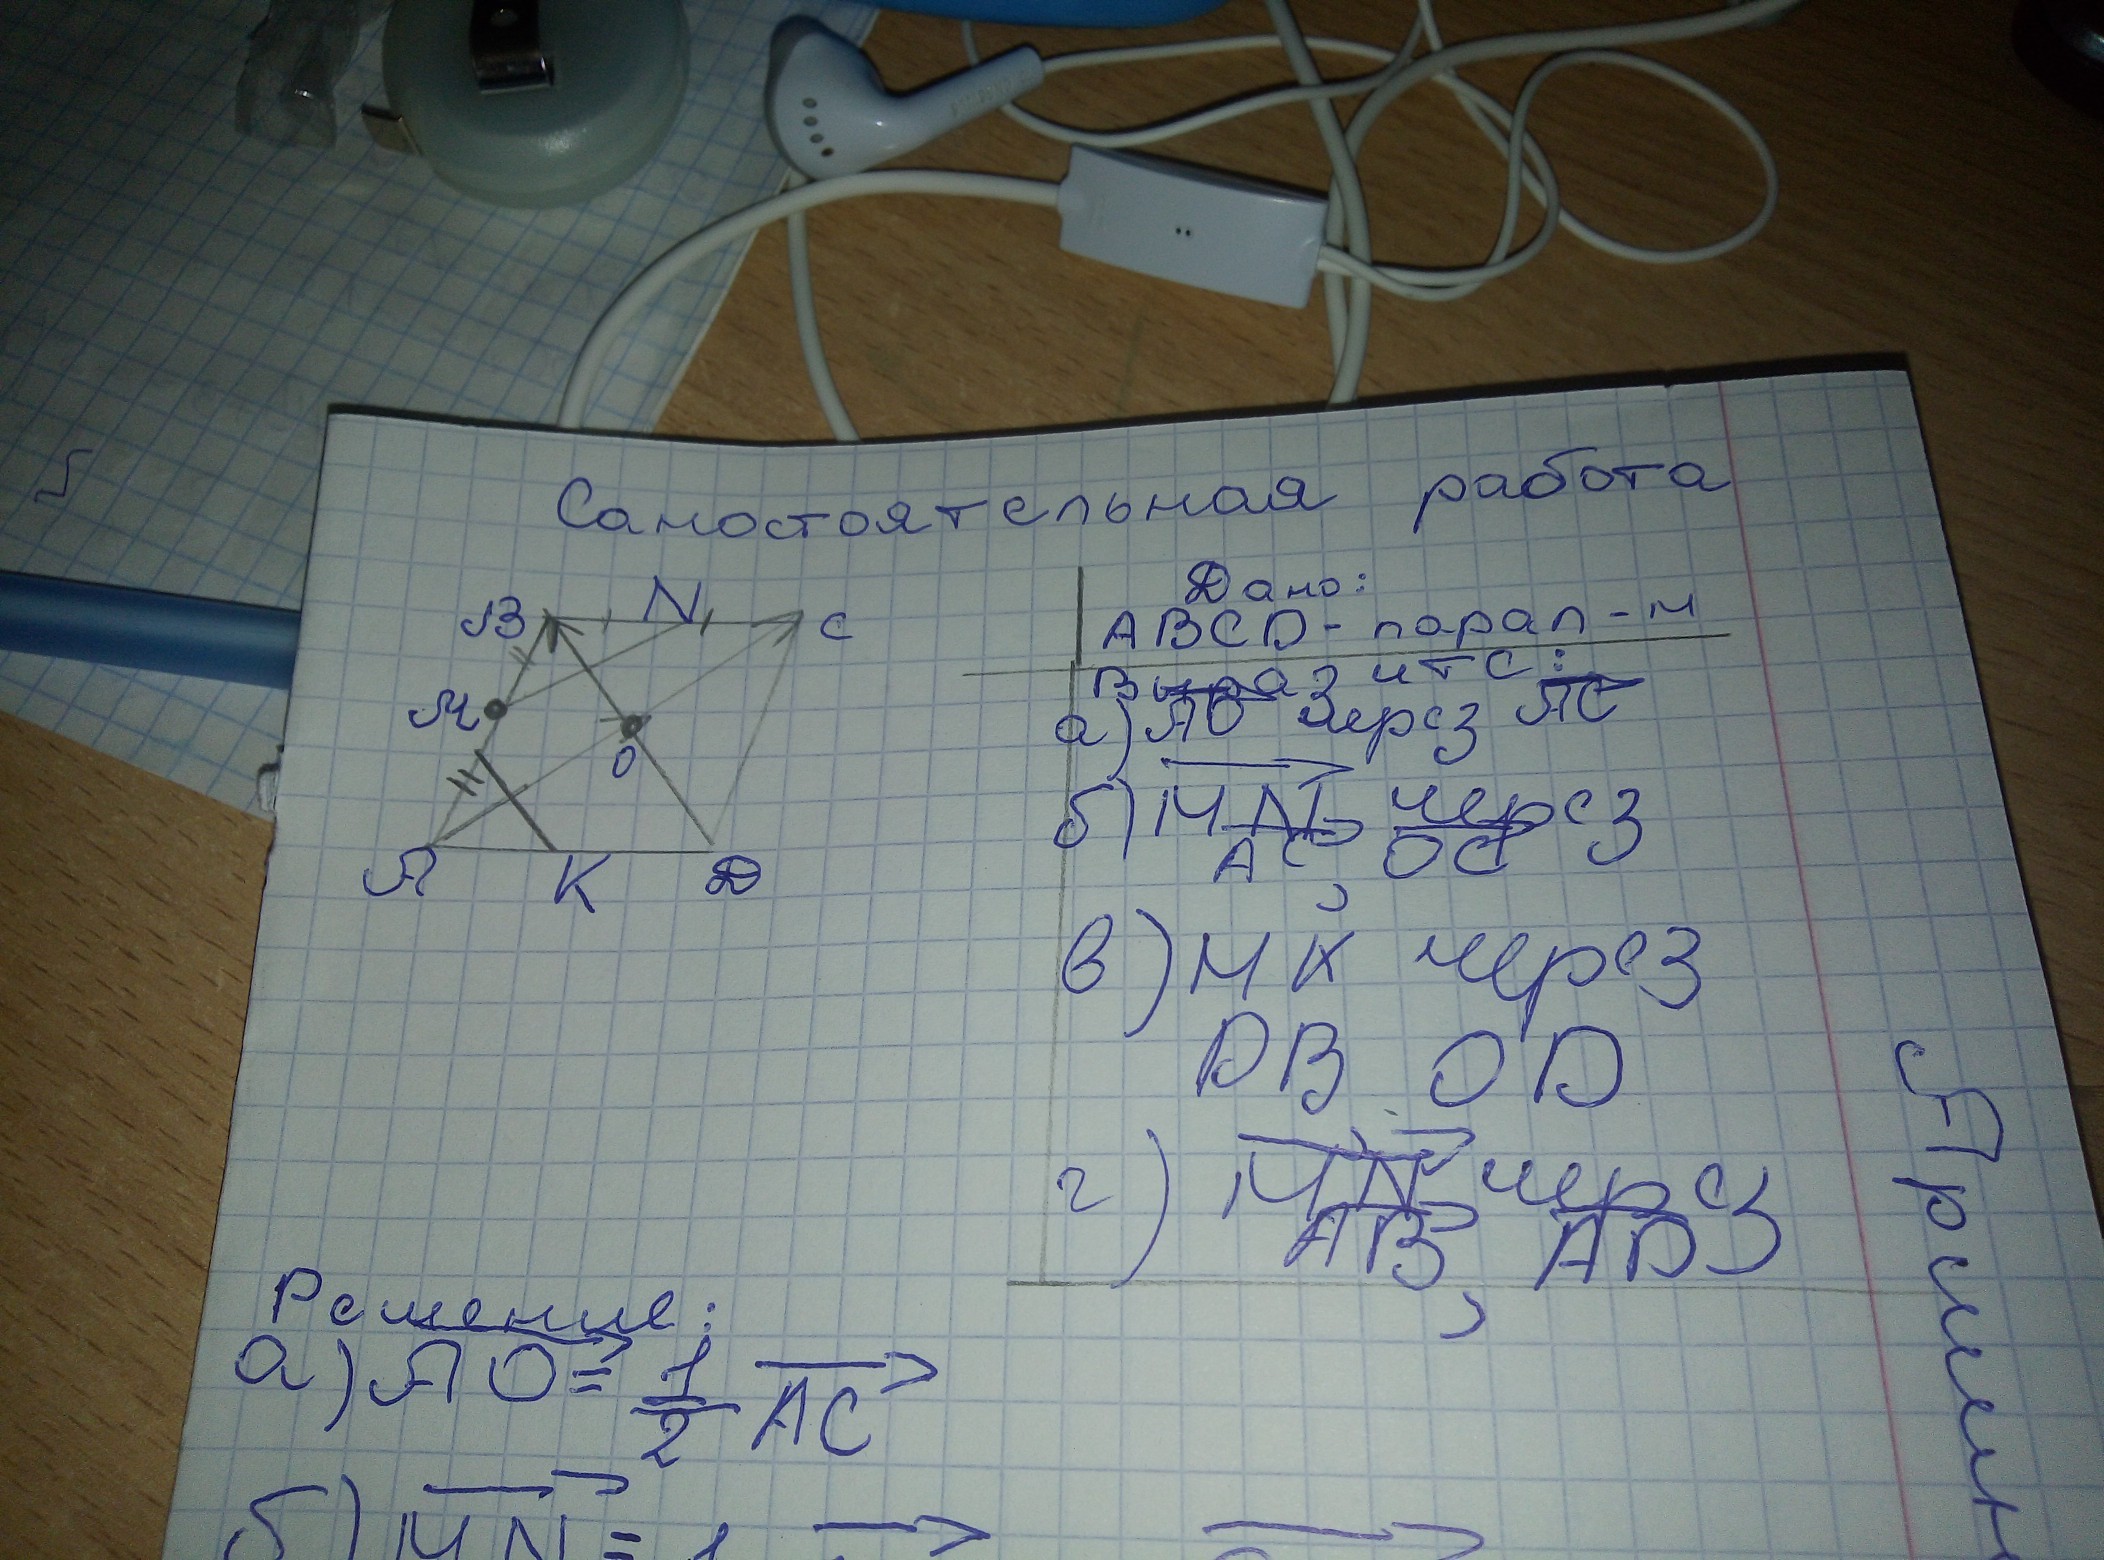 Самостоятельная работа
B N C
M
O
A K D
Дано:
ABCD - парал - м
Выразите:
а) AO через AC
б) MN через
AC, OC
в) MK через
DB OD
г) MN через
AB, AD
Решение:
а) AO = 1/2 AC
б) MN = 1